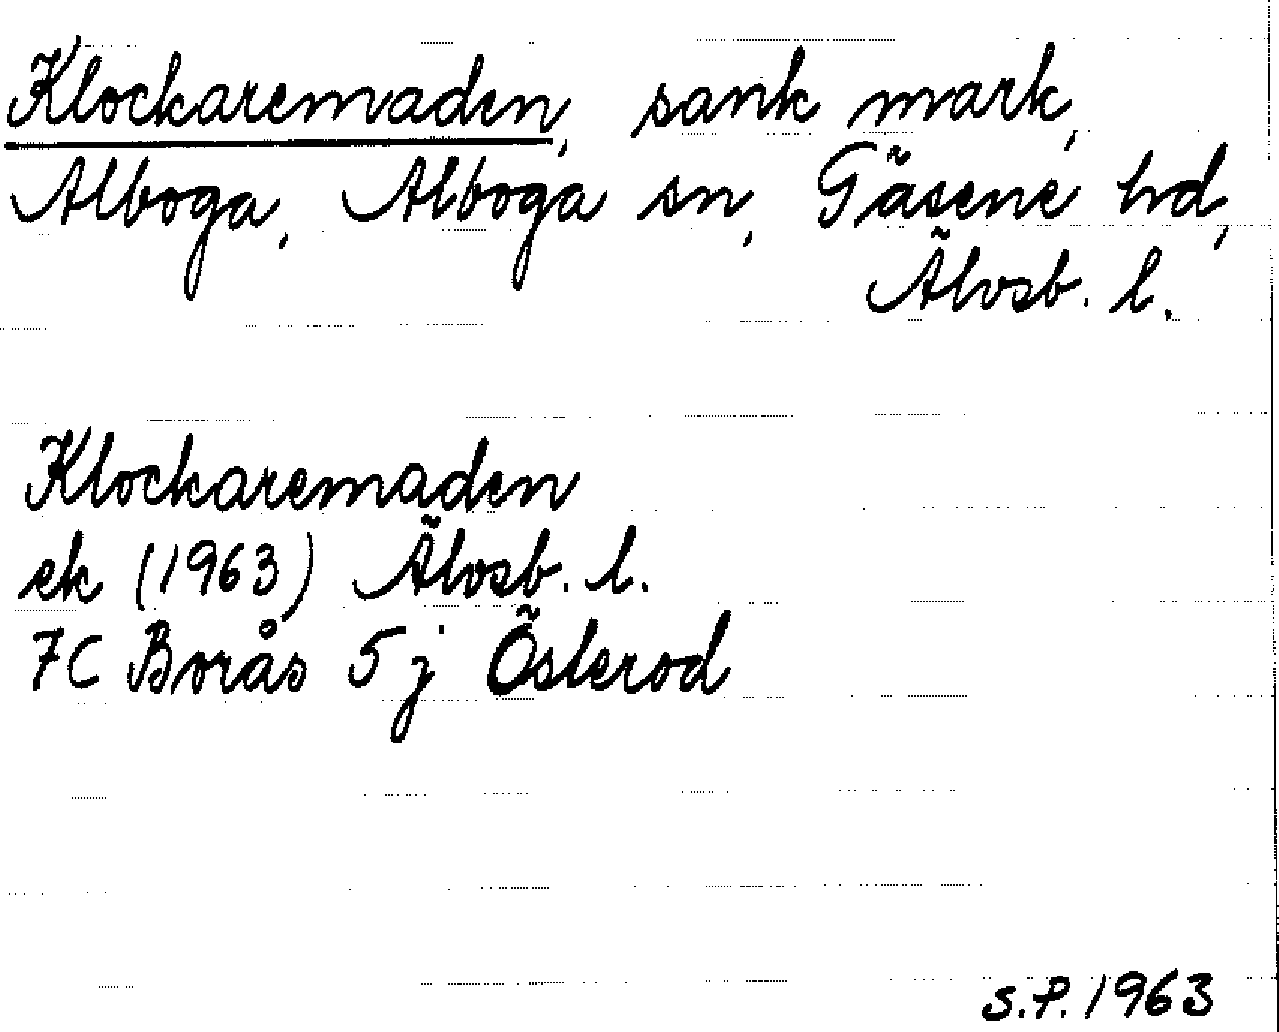 Klockaremaden, sank mark,
Alboga, Alboga sn, Gäsene hd,
Älvsb. l.
Klockaremaden
ek (1963) Älvsb. l.
7C Borås 5j Österod
S.P. 1963